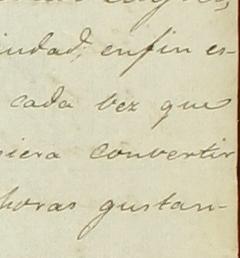 iudad, enfin es-
cada vez que
siera convertir
horas gustan-